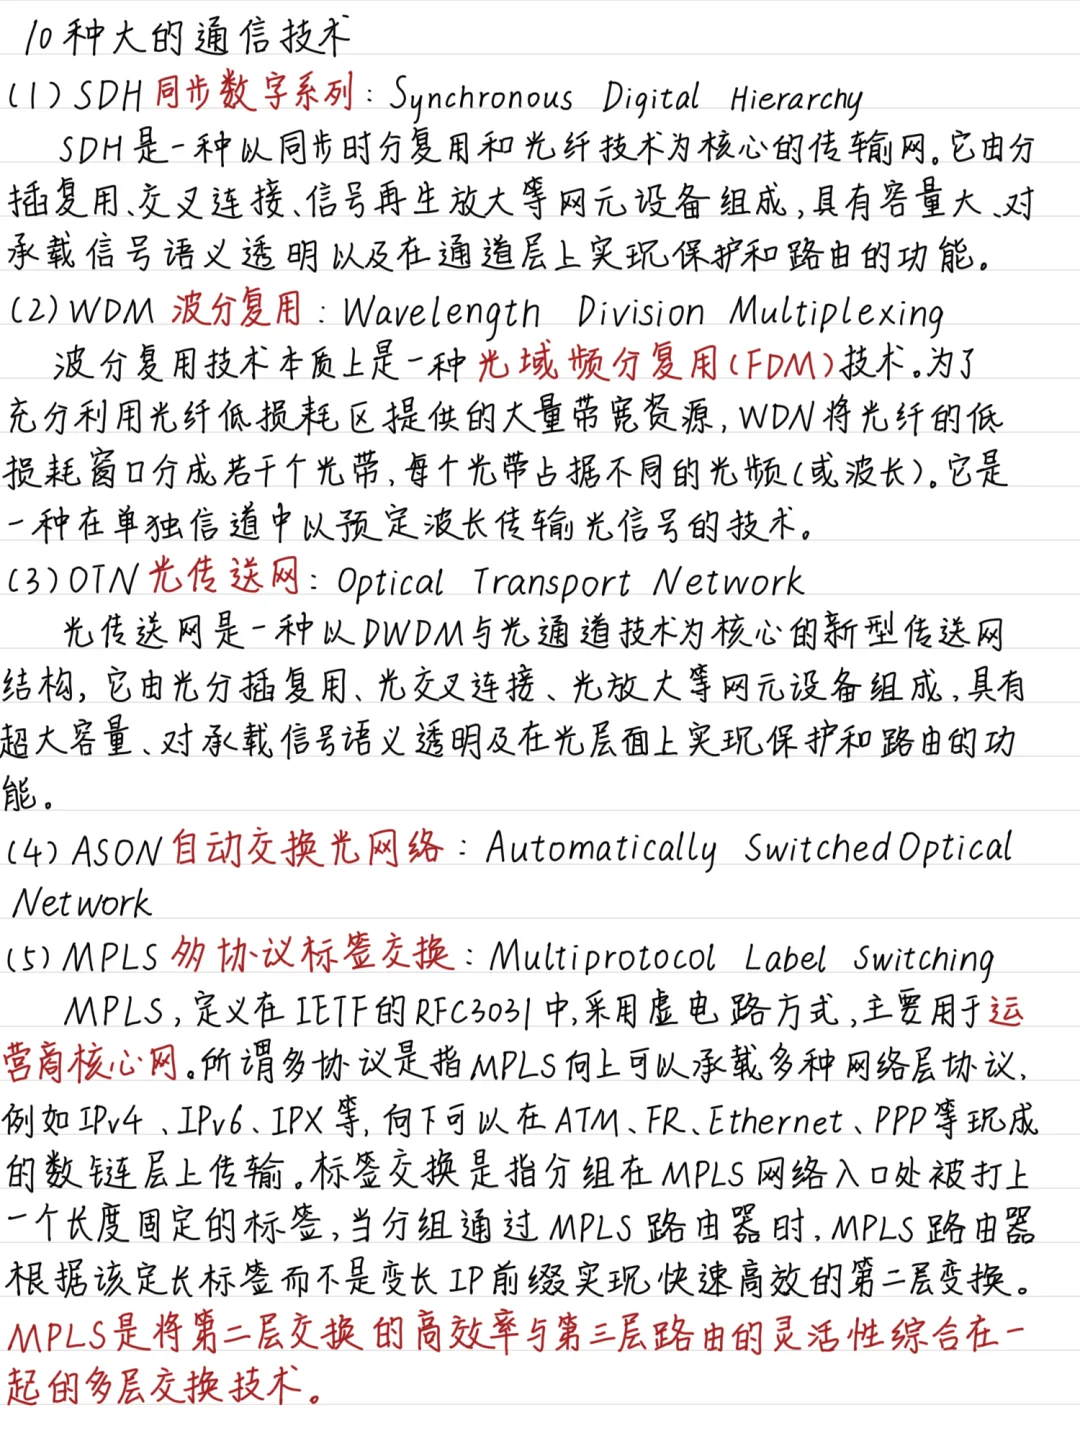 10种大的通信技术
(1) SDH同步数字系列: Synchronous Digital Hierarchy
SDH是一种以同步时分复用和光纤技术为核心的传输网。它由分
插复用、交叉连接、信号再生放大等网元设备组成,具有容量大、对
承载信号语义透明以及在通道层上实现保护和路由的功能。
(2) WDM 波分复用: Wavelength Division Multiplexing
波分复用技术本质上是一种光域频分复用(FDM)技术。为了
充分利用光纤低损耗区提供的大量带宽资源, WDN将光纤的低
损耗窗口分成若干个光带,每个光带占据不同的光频(或波长)。它是
一种在单独信道中以预定波长传输光信号的技术。
(3) OTN光传送网: Optical Transport Network
光传送网是一种以DWDM与光通道技术为核心的新型传送网
结构,它由光分插复用、光交叉连接、光放大等网元设备组成,具有
超大容量、对承载信号语义透明及在光层面上实现保护和路由的功
能。
(4) ASON自动交换光网络: Automatically Switched Optical
Network
(5) MPLS 多协议标签交换: Multiprotocol Label Switching
MPLS,定义在IETF的RFC3031中,采用虚电路方式,主要用于运
营商核心网。所谓多协议是指MPLS向上可以承载多种网络层协议,
例如IPv4、IPv6、IPX等,向下可以在ATM、FR、Ethernet、PPP等现成
的数链层上传输。标签交换是指分组在MPLS网络入口处被打上
一个长度固定的标签,当分组通过MPLS路由器时,MPLS路由器
根据该定长标签而不是变长IP前缀实现快速高效的第二层变换。
MPLS是将第二层交换的高效率与第三层路由的灵活性综合在一
起的多层交换技术。